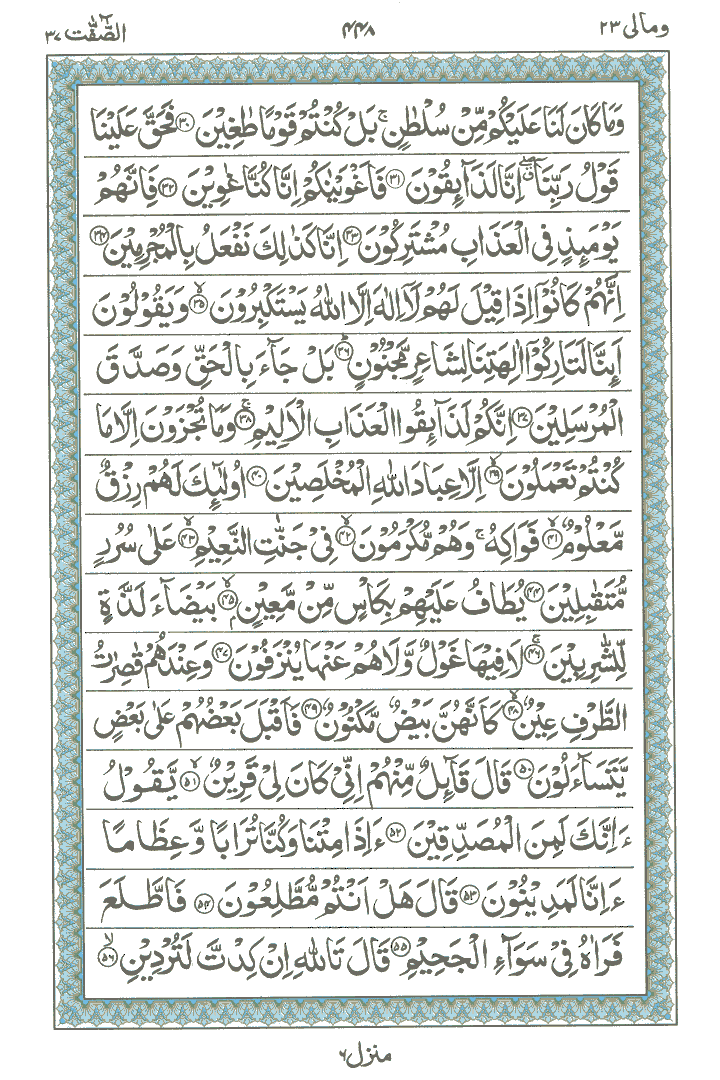 ومالی ۲۳ ۴۴۸ الصّٰٓفّٰت ۳۷
وَمَا كَانَ لَنَا عَلَيْكُمْ مِّنْ سُلْطٰنٍ ۚ بَلْ كُنْتُمْ قَوْمًا طٰغِيْنَ ﴿۳۰﴾ فَحَقَّ عَلَيْنَا
قَوْلُ رَبِّنَآ ۖ اِنَّا لَذَآىِٕقُوْنَ ﴿۳۱﴾ فَاَغْوَيْنٰكُمْ اِنَّا كُنَّا غٰوِيْنَ ﴿۳۲﴾ فَاِنَّهُمْ
يَوْمَىِٕذٍ فِى الْعَذَابِ مُشْتَرِكُوْنَ ﴿۳۳﴾ اِنَّا كَذٰلِكَ نَفْعَلُ بِالْمُجْرِمِيْنَ ﴿۳۴﴾
اِنَّهُمْ كَانُوْٓا اِذَا قِيْلَ لَهُمْ لَآ اِلٰهَ اِلَّا اللّٰهُ يَسْتَكْبِرُوْنَ ﴿۳۵﴾ وَيَقُوْلُوْنَ
اَىِٕنَّا لَتَارِكُوْٓا اٰلِهَتِنَا لِشَاعِرٍ مَّجْنُوْنٍ ﴿۳۶﴾ بَلْ جَآءَ بِالْحَقِّ وَصَدَّقَ
الْمُرْسَلِيْنَ ﴿۳۷﴾ اِنَّكُمْ لَذَآىِٕقُوا الْعَذَابِ الْاَلِيْمِ ﴿۳۸﴾ وَمَا تُجْزَوْنَ اِلَّا مَا
كُنْتُمْ تَعْمَلُوْنَ ﴿۳۹﴾ اِلَّا عِبَادَ اللّٰهِ الْمُخْلَصِيْنَ ﴿۴۰﴾ اُولٰٓىِٕكَ لَهُمْ رِزْقٌ
مَّعْلُوْمٌ ﴿۴۱﴾ فَوَاكِهُ ۚ وَهُمْ مُّكْرَمُوْنَ ﴿۴۲﴾ فِيْ جَنّٰتِ النَّعِيْمِ ﴿۴۳﴾ عَلٰى سُرُرٍ
مُّتَقٰبِلِيْنَ ﴿۴۴﴾ يُطَافُ عَلَيْهِمْ بِكَاْسٍ مِّنْ مَّعِيْنٍ ﴿۴۵﴾ بَيْضَآءَ لَذَّةٍ
لِّلشّٰرِبِيْنَ ﴿۴۶﴾ لَا فِيْهَا غَوْلٌ وَّلَا هُمْ عَنْهَا يُنْزَفُوْنَ ﴿۴۷﴾ وَعِنْدَهُمْ قٰصِرٰتُ
الطَّرْفِ عِيْنٌ ﴿۴۸﴾ كَاَنَّهُنَّ بَيْضٌ مَّكْنُوْنٌ ﴿۴۹﴾ فَاَقْبَلَ بَعْضُهُمْ عَلٰى بَعْضٍ
يَّتَسَآءَلُوْنَ ﴿۵۰﴾ قَالَ قَآىِٕلٌ مِّنْهُمْ اِنِّيْ كَانَ لِيْ قَرِيْنٌ ﴿۵۱﴾ يَّقُوْلُ
ءَاِنَّكَ لَمِنَ الْمُصَدِّقِيْنَ ﴿۵۲﴾ ءَاِذَا مِتْنَا وَكُنَّا تُرَابًا وَّعِظَامًا
ءَاِنَّا لَمَدِيْنُوْنَ ﴿۵۳﴾ قَالَ هَلْ اَنْتُمْ مُّطَّلِعُوْنَ ﴿۵۴﴾ فَاطَّلَعَ
فَرَاٰهُ فِيْ سَوَآءِ الْجَحِيْمِ ﴿۵۵﴾ قَالَ تَاللّٰهِ اِنْ كِدْتَّ لَتُرْدِيْنِ ﴿۵۶﴾
منزل ۶